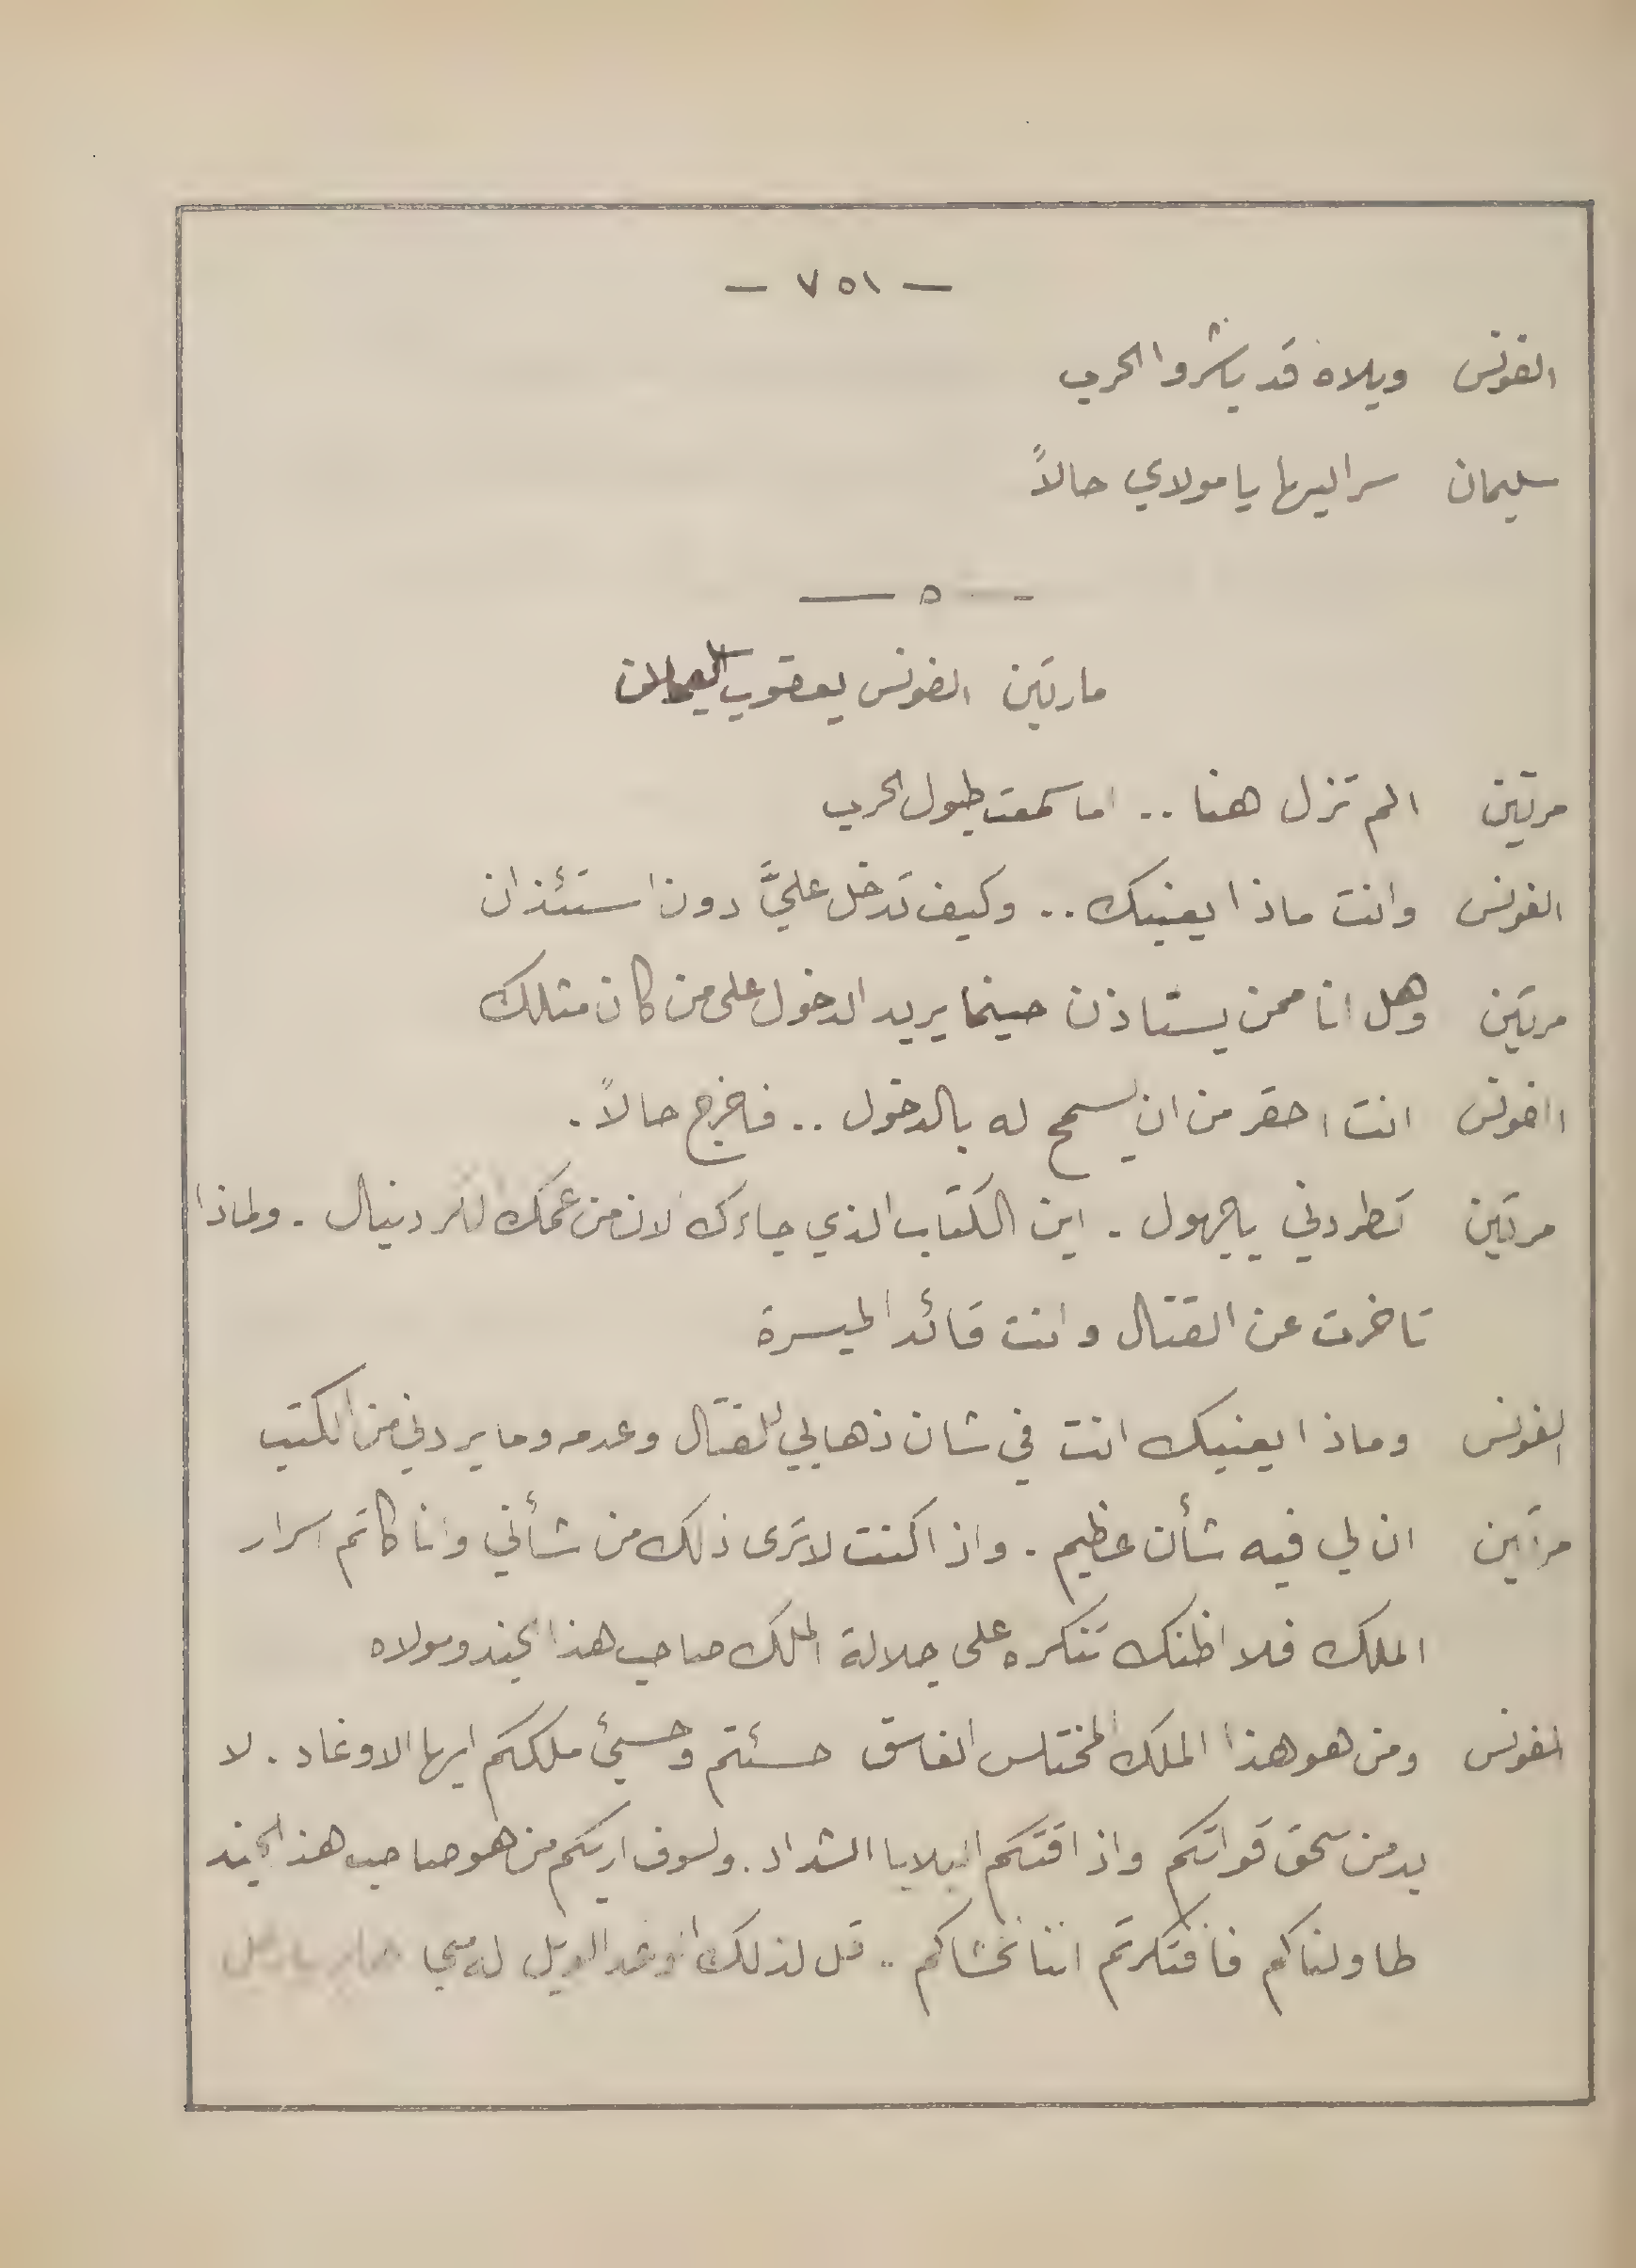 — ٧٥١ —
الفونس ويلاه قد باشروا الحرب
سليمان سر اليها يا مولاي حالاً
— ٥ —
مارتين الفونس يعقوب سليمان
مرتين الم تزل هنا .. اما سمعت طبول الحرب
الفونس وانت ماذا يعنيك .. وكيف تدخل عليَّ دون استئذان
مرتين وهل انا ممن يستاذن حينما يريد الدخول على من كان مثلك
الفونس انت احقر من ان يسمح له بالدخول .. فاخرج حالاً .
مرتين تطردني يا جهول . اين الكتاب الذي جاءك لان من عمك الكردينال . ولماذا
تاخرت عن القتال وانت قائد الميسرة
الفونس وماذا يعنيك انت في شان ذهابي للقتال وعدمه وما يردني من الكتب
مرتين ان لي فيه شأن عظيم . واذا كنت لا ترى ذلك من شأني وانا كاتم اسرار
الملك فلا اظنك تنكره على جلالة الملك صاحب هذا الجند ومولاه
الفونس ومن هو هذا الملك المختلس الفاسق خسئتم وخسئ ملككم ايها الاوغاد . لا
بد من سحق قواتكم واذاقتكم البلايا الشداد . ولسوف اريكم من هو صاحب هذا الجند
طاولناكم فافتكرتم اننا نخشاكم .. قل لذلك الوغد الويل له مني